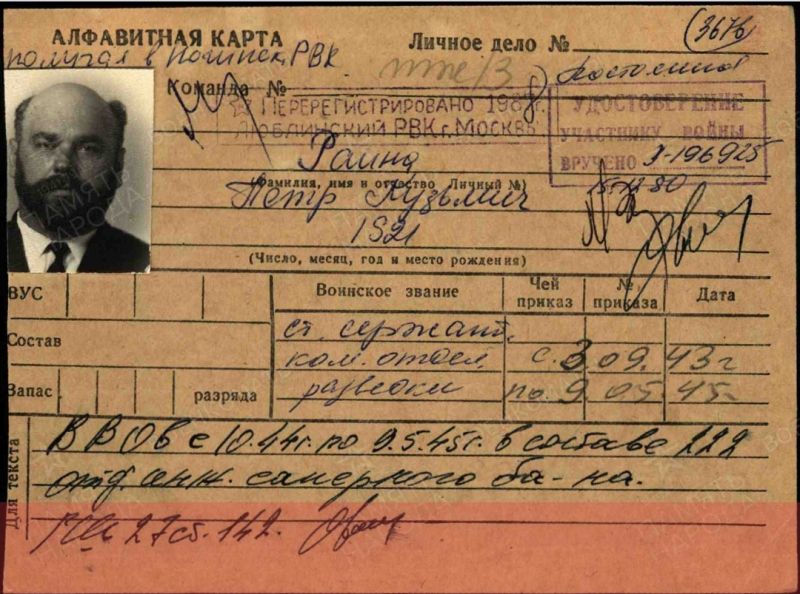 АЛФАВИТНАЯ КАРТА
Личное дело №
(367б)
в Ногинск. РВК
Команда №
ПЕРЕРЕГИСТРИРОВАНО 198 г.
ЛЮБЛИНСКИЙ РВК г. МОСКВЫ
УДОСТОВЕРЕНИЕ
УЧАСТНИКУ ВОЙНЫ
ВРУЧЕНО
196925
15.12.80
Раина
(Фамилия, имя и отчество Личный №)
Петр Кузьмич
1921
(Число, месяц, год и место рождения)
ВУС
Состав
Запас
разряда
Воинское звание
Чей приказ
№ приказа
Дата
ст. сержант
ком. отдел. с 3 09. 43г
разведки по 9. 05. 45.
Для текста
В ВОв с 10.44г. по 9.5.45г. в составе 222
отд. инж. саперного ба-на.
27 ст. 142.
ПАМЯТЬ НАРОДА